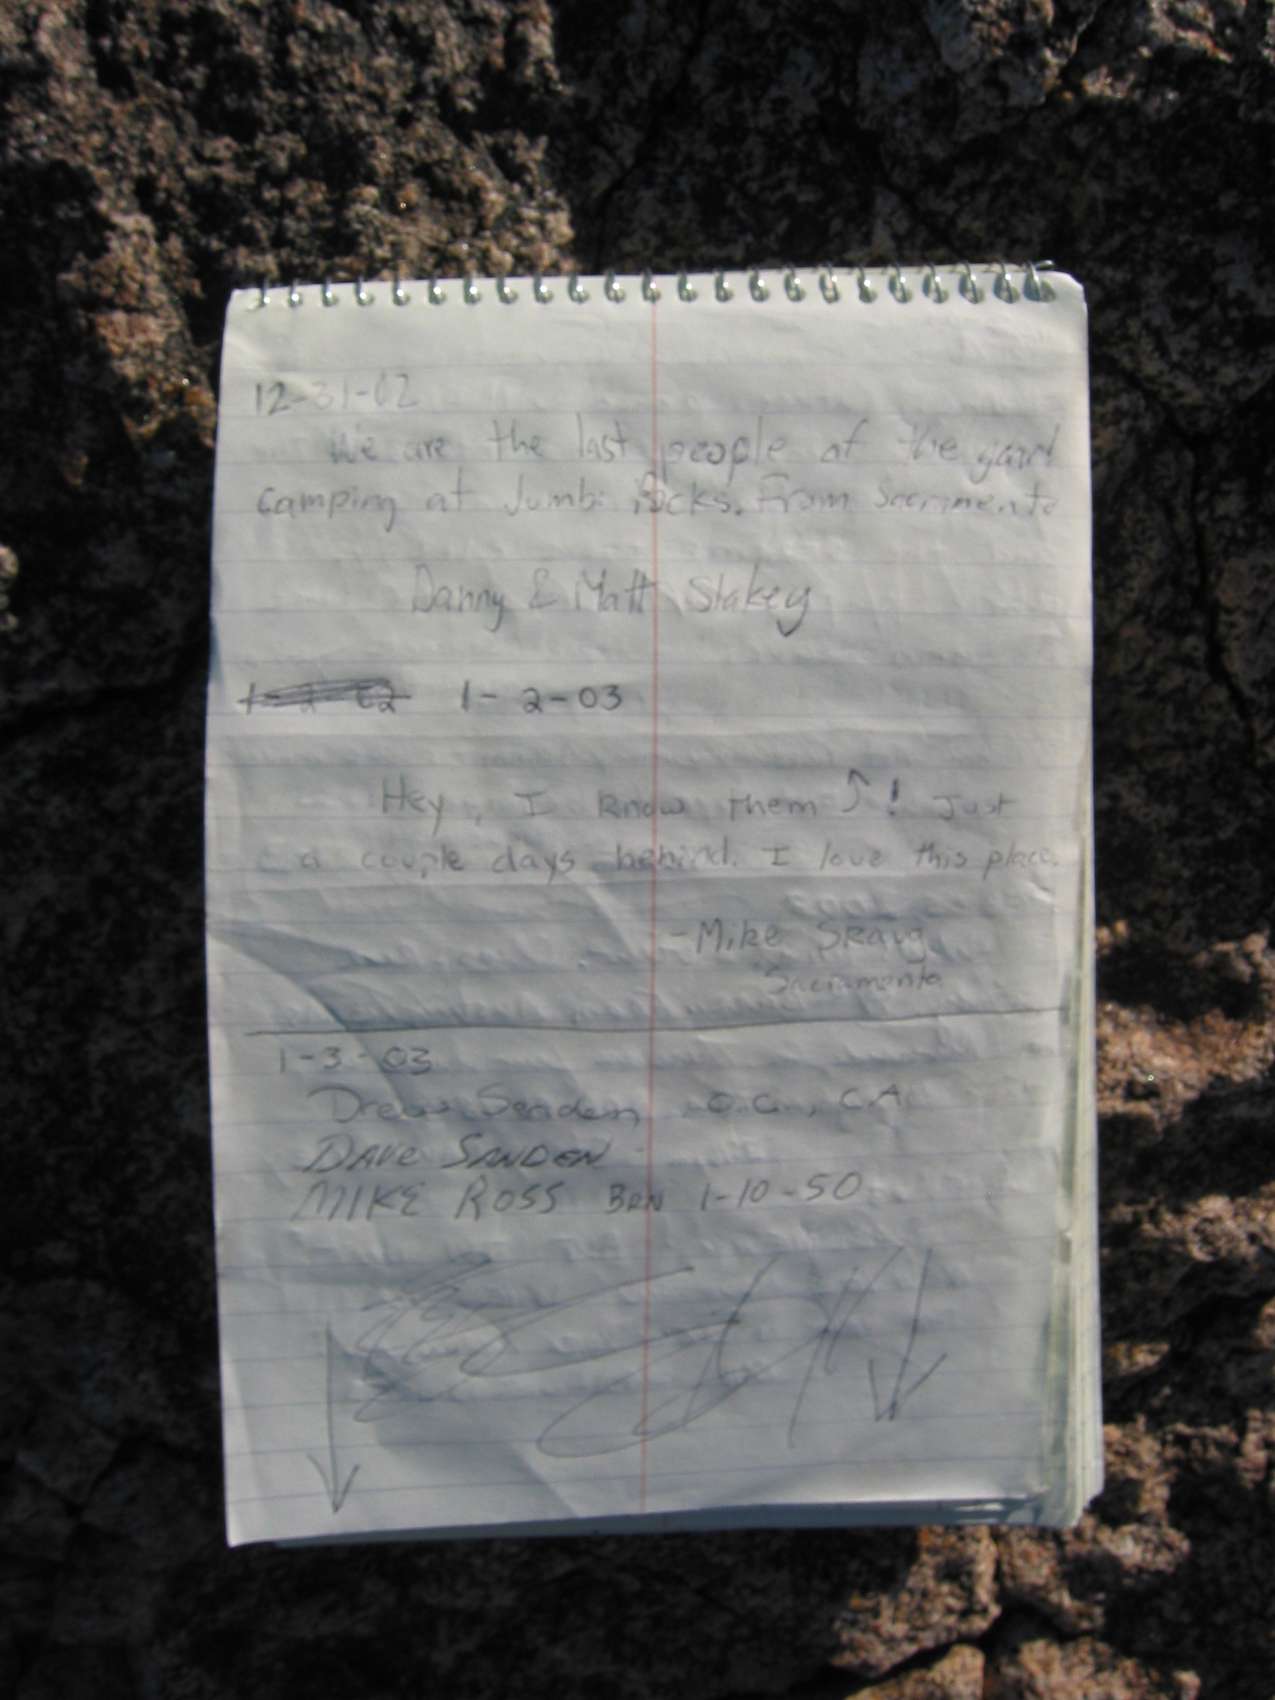 12-31-02
We are the last people of the year
camping at Jumbo Rocks. From Sacrmento
Danny & Matt Stakey
1-2-02 1-2-03
Hey, I know them ⤴! Just
a couple days behind. I love this place.
-Mike
Sacramento
1-3-03
Drew Sanden, O.C., CA
DAVE SANDEN
MIKE ROSS BRN 1-10-50